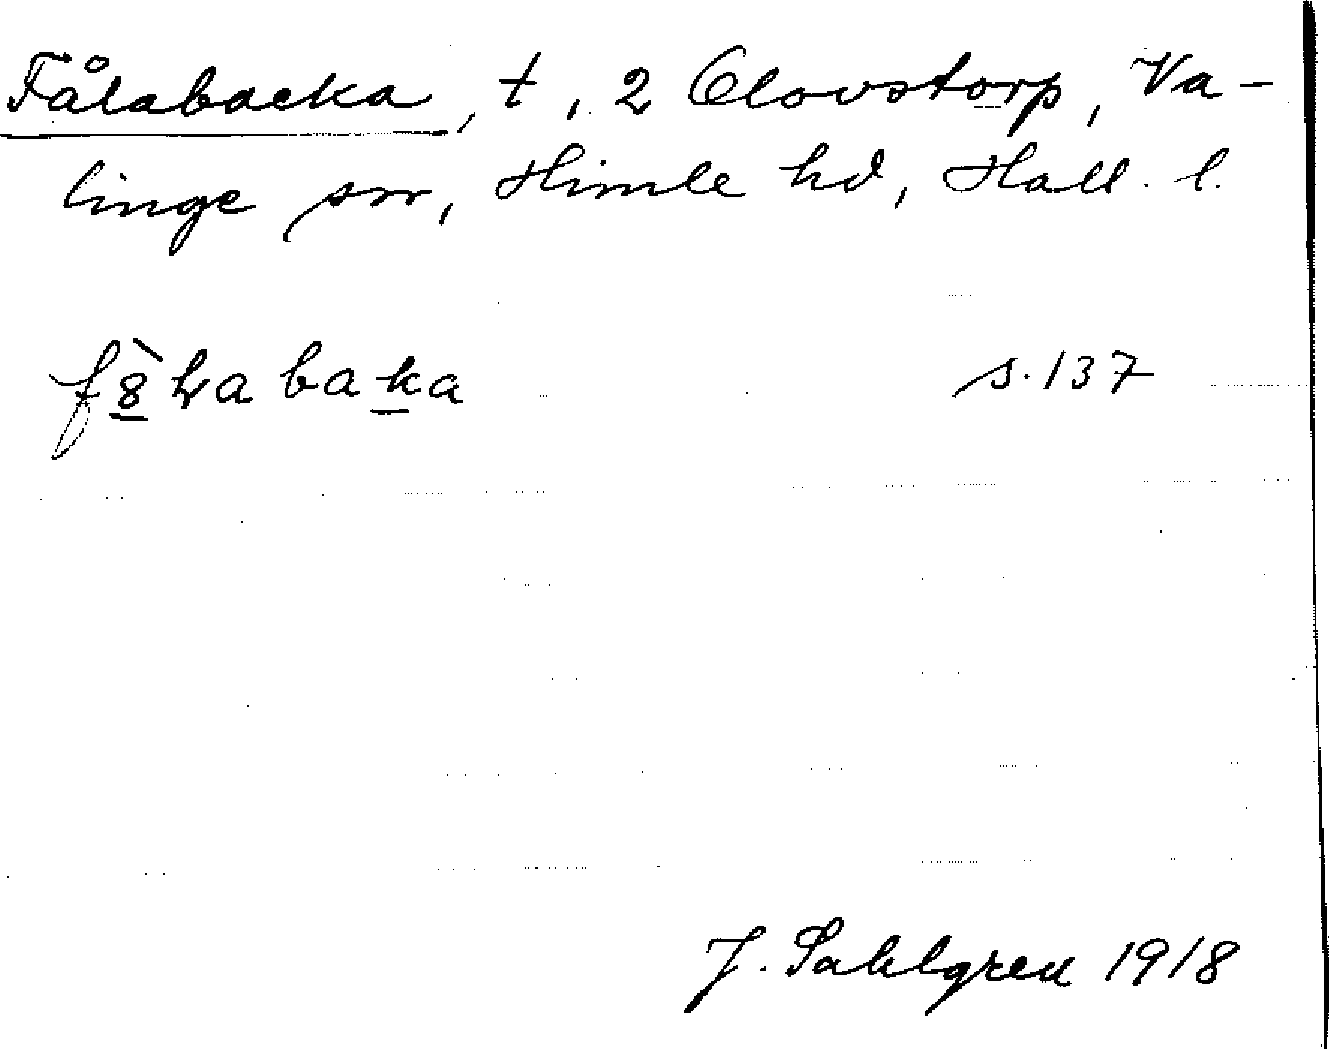 Fålabacka, t, 2 Olovstorp, Va-
linge sn, Himle hd, Hall. l.
f8̀ɫabaka s.137
J. Sahlgren 1918